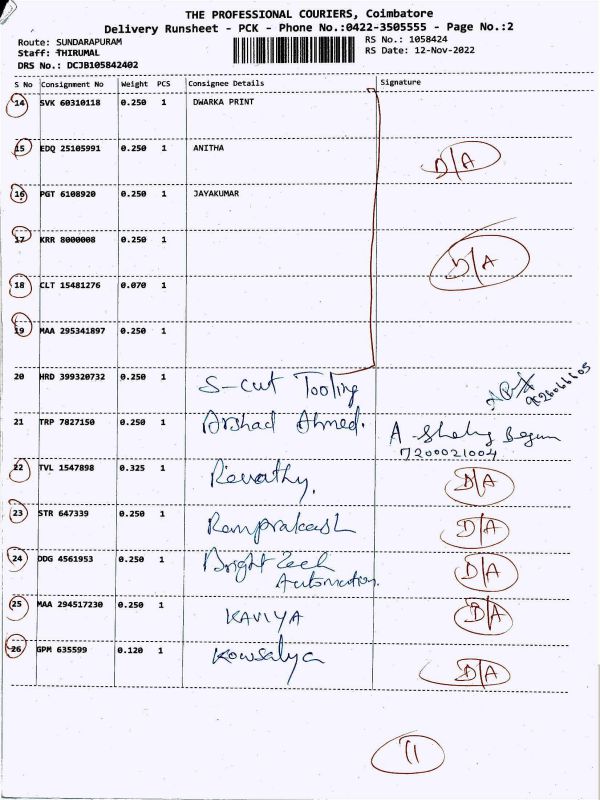 THE PROFESSIONAL COURIERS, Coimbatore
Delivery Runsheet - PCK - Phone No.:0422-3505555 - Page No.:2
Route: SUNDARAPURAM
RS No.: 1058424
Staff: THIRUMAL
RS Date: 12-Nov-2022
DRS No.: DCJB105842402
S No Consignment No Weight PCS Consignee Details Signature
14 SVK 60310118 0.250 1 DWARKA PRINT
15 EDQ 25105991 0.250 1 ANITHA D/A
16 PGT 6108920 0.250 1 JAYAKUMAR
17 KRR 8000008 0.250 1 D/A
18 CLT 15481276 0.070 1
19 MAA 295341897 0.250 1
20 HRD 399320732 0.250 1 S-cut Tooling
21 TRP 7827150 0.250 1 Arshad Ahmed. A Begum
7200021004
22 TVL 1547898 0.325 1 Revathy. D/A
23 STR 647339 0.250 1 Ramprakash D/A
24 DDG 4561953 0.250 1 Bright Tech D/A
Automation.
25 MAA 294517230 0.250 1 KAVIYA D/A
26 GPM 635599 0.120 1 Kowsalya D/A
11